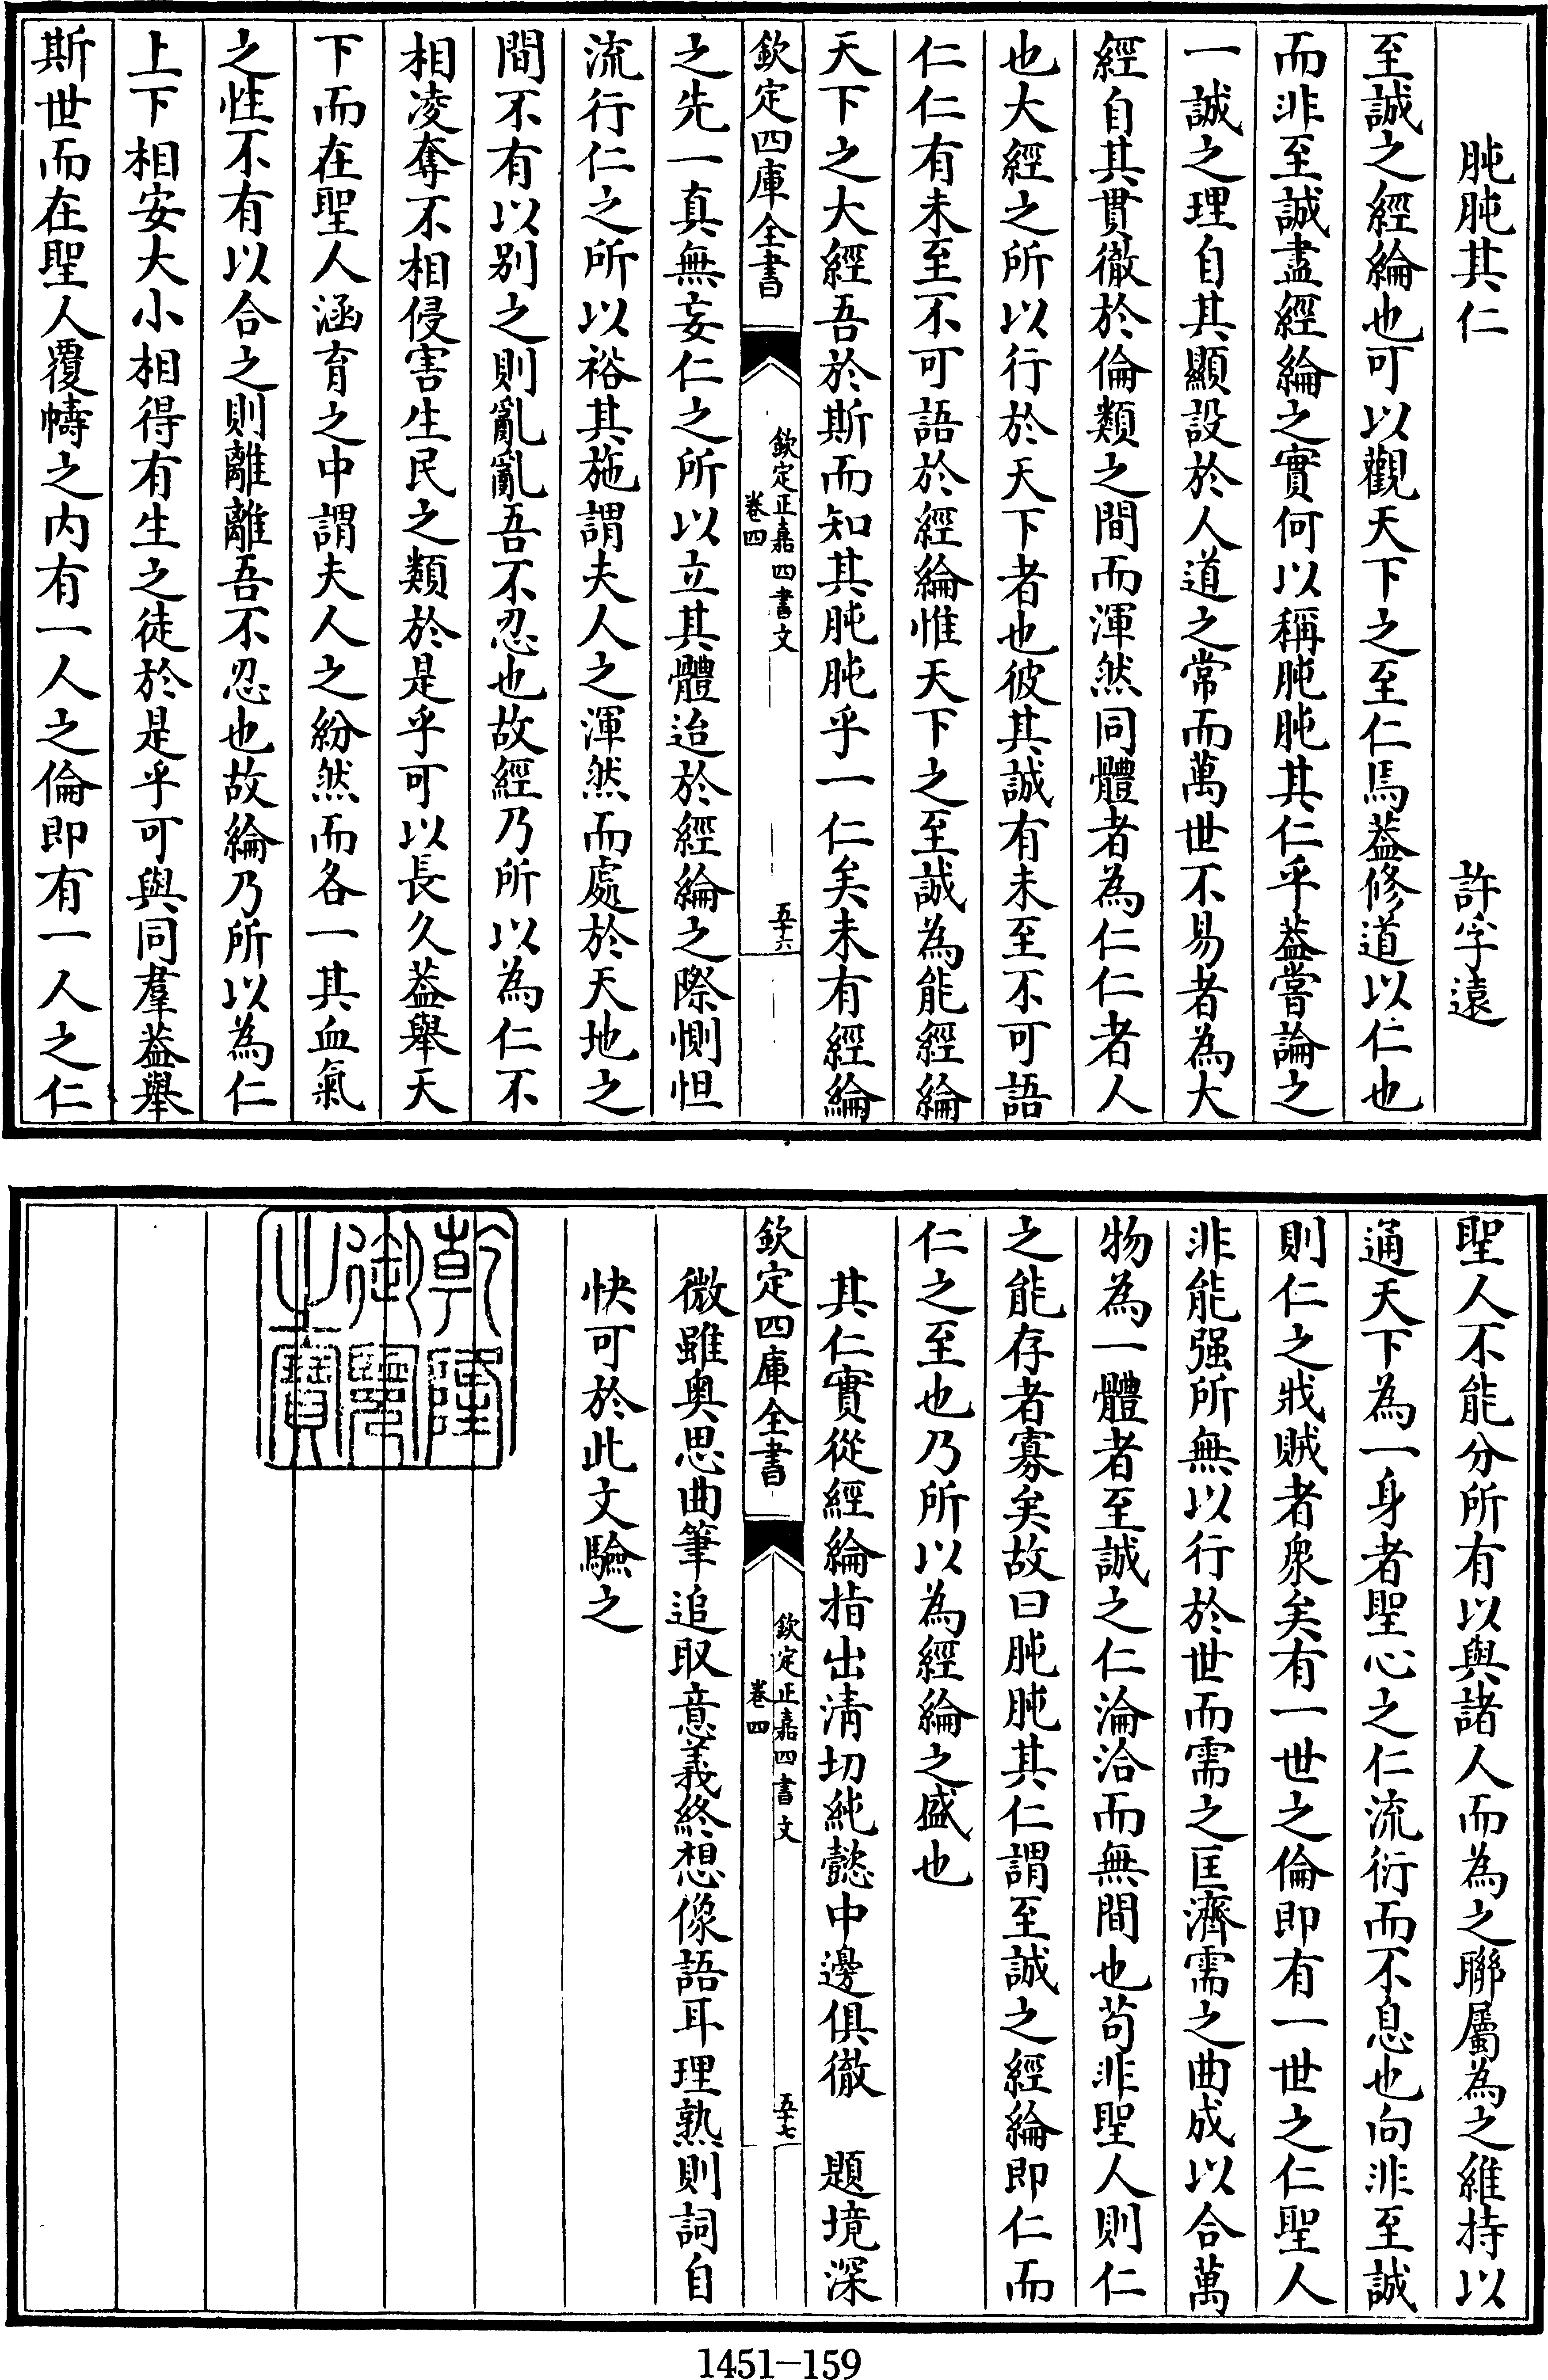 肫肫其仁　許孚遠
至誠之經綸也可以觀天下之至仁焉蓋修道以仁也
而非至誠盡經綸之實何以稱肫肫其仁乎蓋嘗論之
一誠之理自其顯設於人道之常而萬世不易者為大
經自其貫徹於倫類之間而渾然同體者為仁仁者人
也大經之所以行於天下者也彼其誠有未至不可語
仁仁有未至不可語於經綸惟天下之至誠為能經綸
天下之大經吾於斯而知其肫肫乎一仁矣未有經綸
欽定四庫全書
欽定正嘉四書文
卷四
五十六
之先一真無妄仁之所以立其體迨於經綸之際惻怛
流行仁之所以裕其施謂夫人之渾然而處於天地之
間不有以別之則亂亂吾不忍也故經乃所以為仁不
相凌奪不相侵害生民之類於是乎可以長久蓋舉天
下而在聖人涵育之中謂夫人之紛然而各一其血氣
之性不有以合之則離離吾不忍也故綸乃所以為仁
上下相安大小相得有生之徒於是乎可與同羣蓋舉
斯世而在聖人覆幬之内有一人之倫即有一人之仁
聖人不能分所有以與諸人而為之聯屬為之維持以
通天下為一身者聖心之仁流衍而不息也向非至誠
則仁之戕賊者衆矣有一世之倫即有一世之仁聖人
非能强所無以行於世而需之匡濟需之曲成以合萬
物為一體者至誠之仁淪洽而無間也苟非聖人則仁
之能存者寡矣故曰肫肫其仁謂至誠之經綸即仁而
仁之至也乃所以為經綸之盛也
其仁實從經綸指出清切純懿中邊俱徹　題境深
欽定四庫全書
欽定正嘉四書文
卷四
五十七
微雖奥思曲筆追取意義終想像語耳理熟則詞自
快可於此文驗之
乾隆
御覽
之寶
1451—159